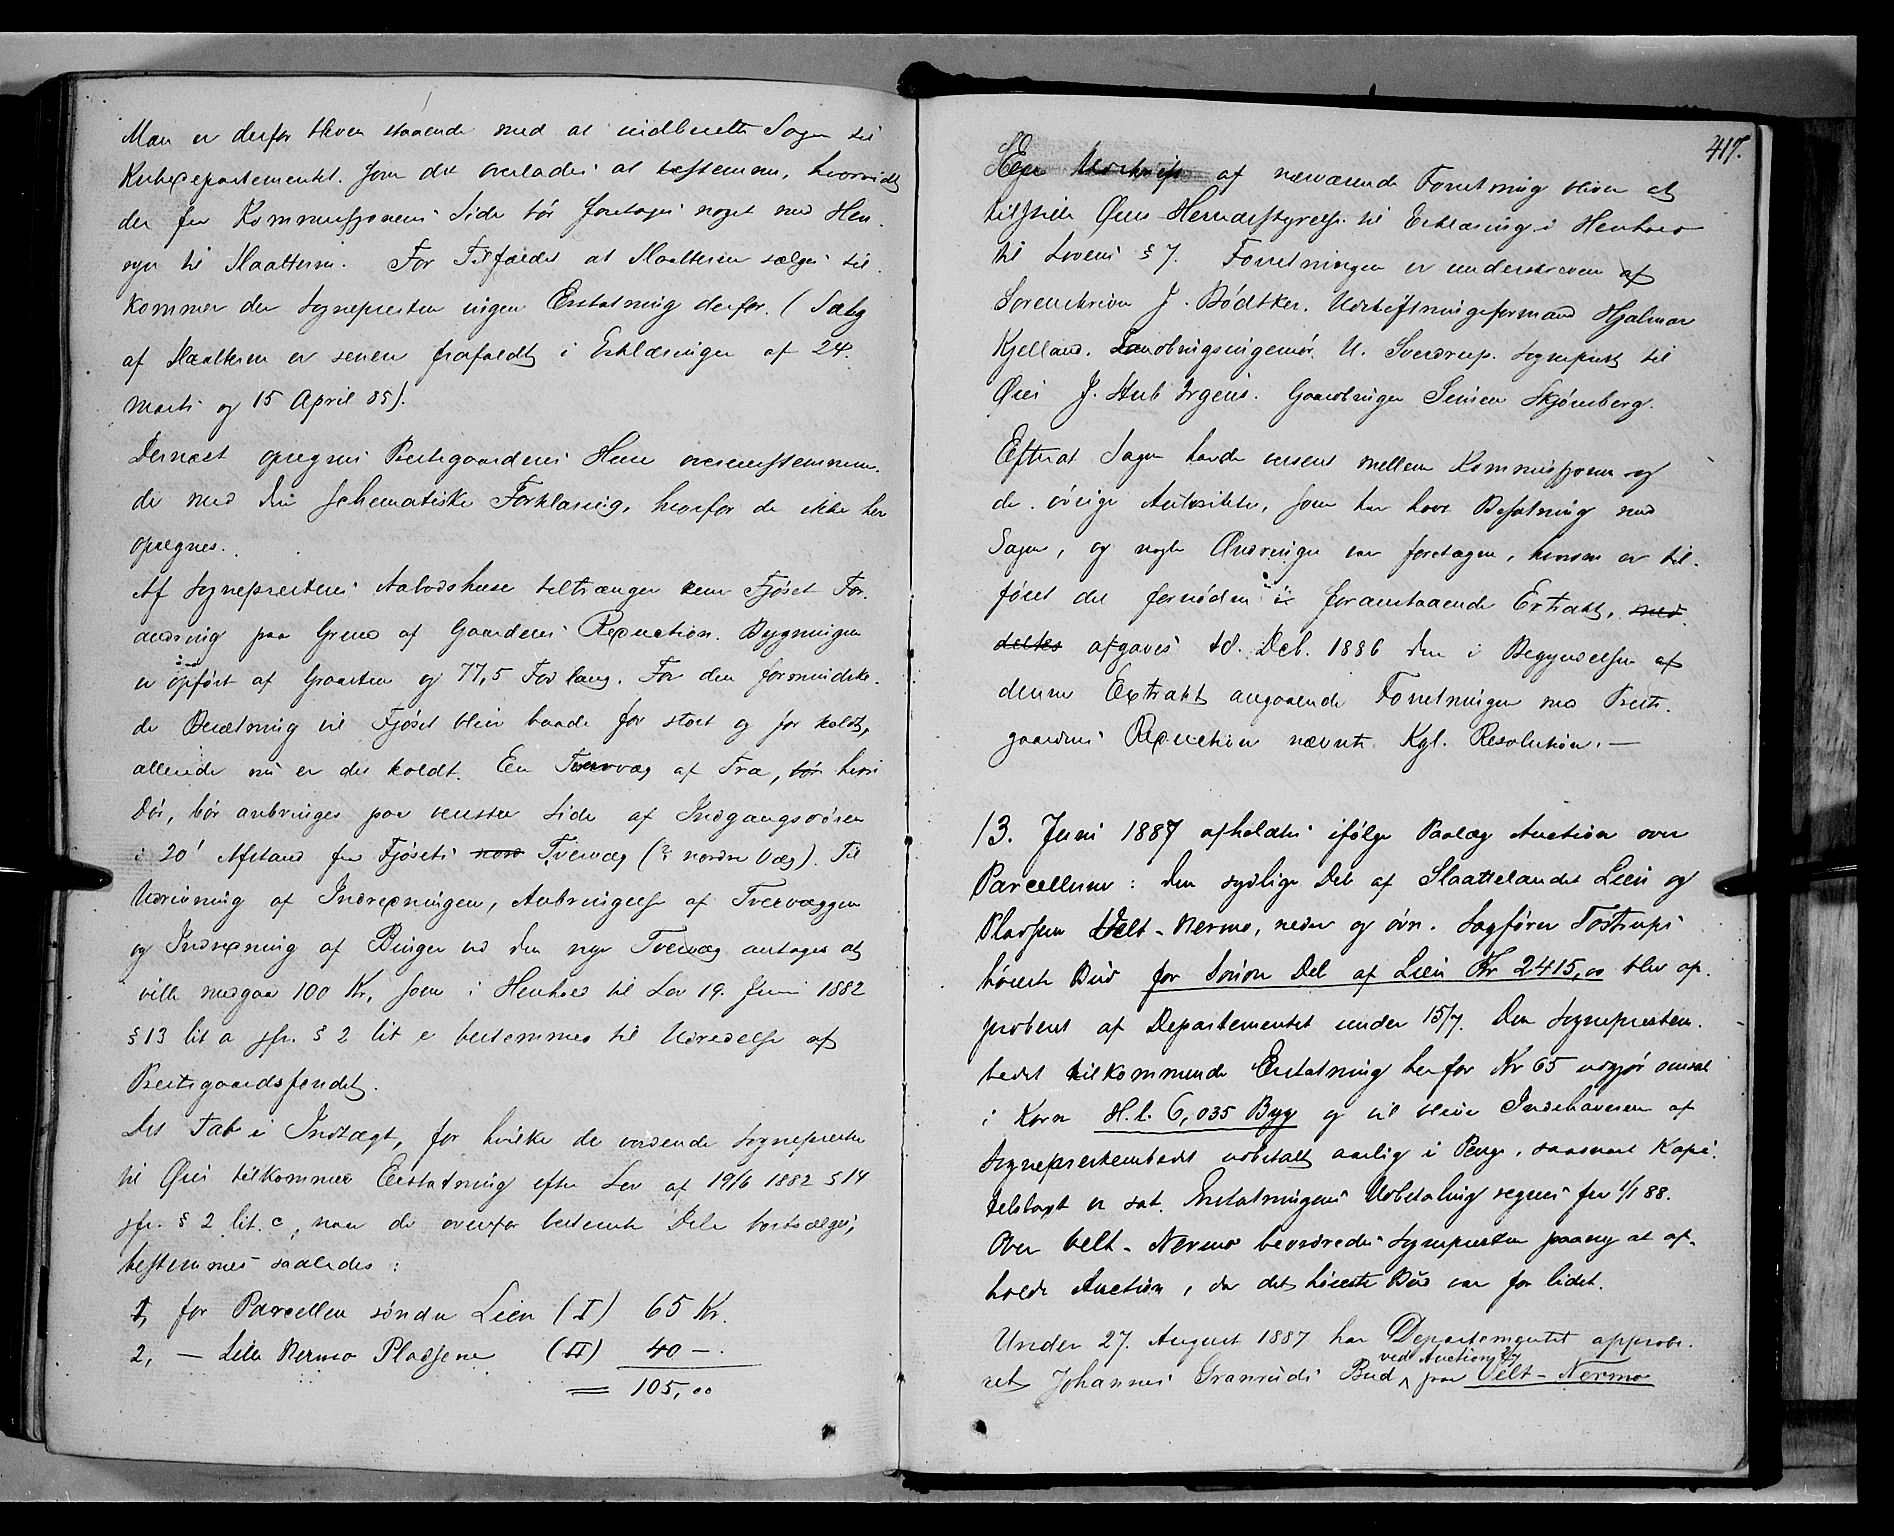 Man er derfor bleven staaende ved at indberette Sagen til
Kirkedepartementet. som det overlades at bestemme, hvorvidt
der fra Kommissjonens Side bør foretages noget med Hen-
syn til Slaatterne. For Tilfældet at Slaatterne sælges til-
kommer der Sognepresten ingen Erstatning derfor. (Salg
af Slaatterne er senere frafaldt i Erklæringer af 24.
Marts og 15 April 85).
Dernæst opregnes Prestegaardenes Huse overensstemmen-
de med den schematiske Forklaring, hvorfor de ikke her
opregnes.
Af Sogneprestens Aabodshuse tiltrænger kun Fjøset For-
andring paa Grund af Gaardens Reduction. Bygningen
er opført af Graasten og 77,5 Fod lang. For den formindske-
de Besætning vil Fjøset blive baade for stort og for koldt,
allerede nu er det koldt. En Tvervæg af Træ, bør hvori
Dør, bør anbringes paa venstre Side af Indgangsdøren
i 20' Afstand fra Fjøsets nord Tvervæg (ɔ: nordre Væg). Til
Udrivning af Indredningen, Anbringelse af Tvervæggen
og Indredning af Binger ved den nye Tvervæg antages at
ville medgaa 100 Kr, som i Henhold til Lov 19. Juni 1882
§ 13 lit a jfr. § 2 lit e bestemmes til Udredelse af
Prestegaardsfondet.
Det Tab i Indtægt, for hvilke de værende Sogneprester
til Øier tilkommer Erstatning efter Lov af 19/6 1882 § 14
jfr. § 2 lit. c, naar de ovenfor bestemte Dele bortsælges,
bestemmes saaledes:
1, for Parcellen søndre Lien (I) 65 Kr.
2, — Lille Nermo Pladsene (II) 40 —.
= 105,00
417.
Een Udskrift af nærværende Forretning bliver at
tilstille Øiers Herredsstyrelse til Erklæring i Henhold
til Lovens § 7. Forretningen er underskreven af
Sorenskriver J. Bødtker. Udskiftningsformand Hjalmar
Kjelland. Landbrugsingeniør U. Sverdrup. Sogneprest til
Øier J. Stub Irgens. Gaardbruger Simen Skjønsberg.
Efterat Sagen havde versert mellem Kommissjonen og
de øvrige Autoriteter, som har havt Befatning med
Sagen, og nogle Ændringer var foretagen, hvorom er til-
føiet det fornødne i foranstaaende Extrakt, med-
deltes afgaves 18. Dcb. 1886 den i Begyndelsen af
denne Extrakt angaaende Forretningen med Prests-
gaardens Reduction nævnte Kgl. Resolution. —
13. Juni 1887 afholdtes ifølge Paalæg Auction over
Parcellerne: den sydlige Del af Slaattelandet Lien og
Pladsen Velt-Nermo, nedre og øvr. Sagfører Tostrups
høieste Bud for Søndre Del af Lien Kr 2415,00 blev ap-
probert af Departementet under 15/7. Den Sogneprestem-
bedet tilkommende Erstatning herfor Kr 65 udgjør omsat
i Korn H.l. 6,035 Byg og vil blive Indehaveren af
Sogneprestembedet udbetalt aarlig i Penge, saasnart Kapi-
telstaxt er sat. Erstatningens Udbetaling regnes fra 1/1 88.
Over Velt-Nermo beordredes Sognepresten paany at af-
holde Auction, da det høieste Bud var for lidet.
Under 27. August 1887 har Departementet approbe-
ret Johannes Granruds Bud ved Auction 2/7 paa Velt-Nermo